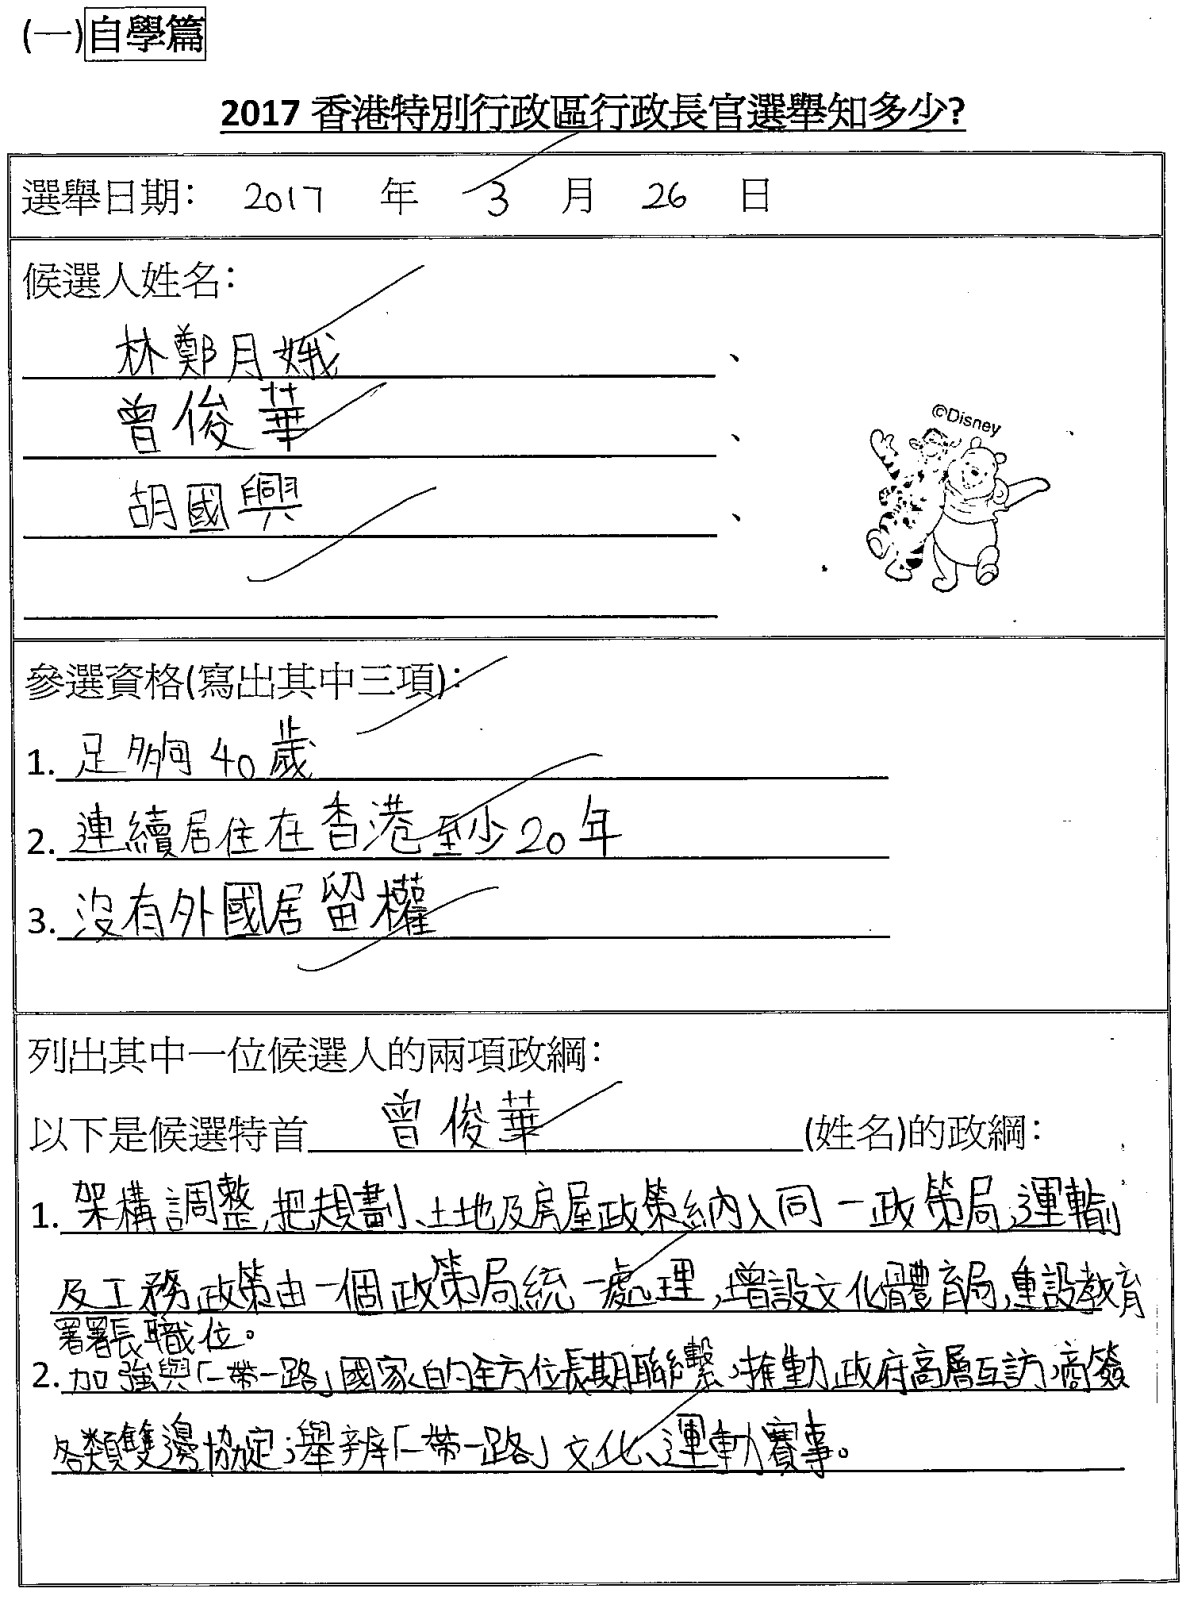 (一)自學篇
2017 香港特別行政區行政長官選舉知多少?
選舉日期: 2017 年 3 月 26 日
候選人姓名:
林鄭月娥、
曾俊華、
胡國興、
©Disney
參選資格(寫出其中三項):
1. 足夠40歲
2. 連續居住在香港至少20年
3. 沒有外國居留權
列出其中一位候選人的兩項政綱:
以下是候選特首 曾俊華 (姓名)的政綱:
1. 架構調整,把規劃、土地及房屋政策納入同一政策局;運輸
及工務政策由一個政策局統一處理,增設文化體育局,重設教育
署署長職位。
2. 加強與「一帶一路」國家的全方位長期聯繫;推動政府高層互訪;商簽
各類雙邊協定;舉辦「一帶一路」文化、運動賽事。